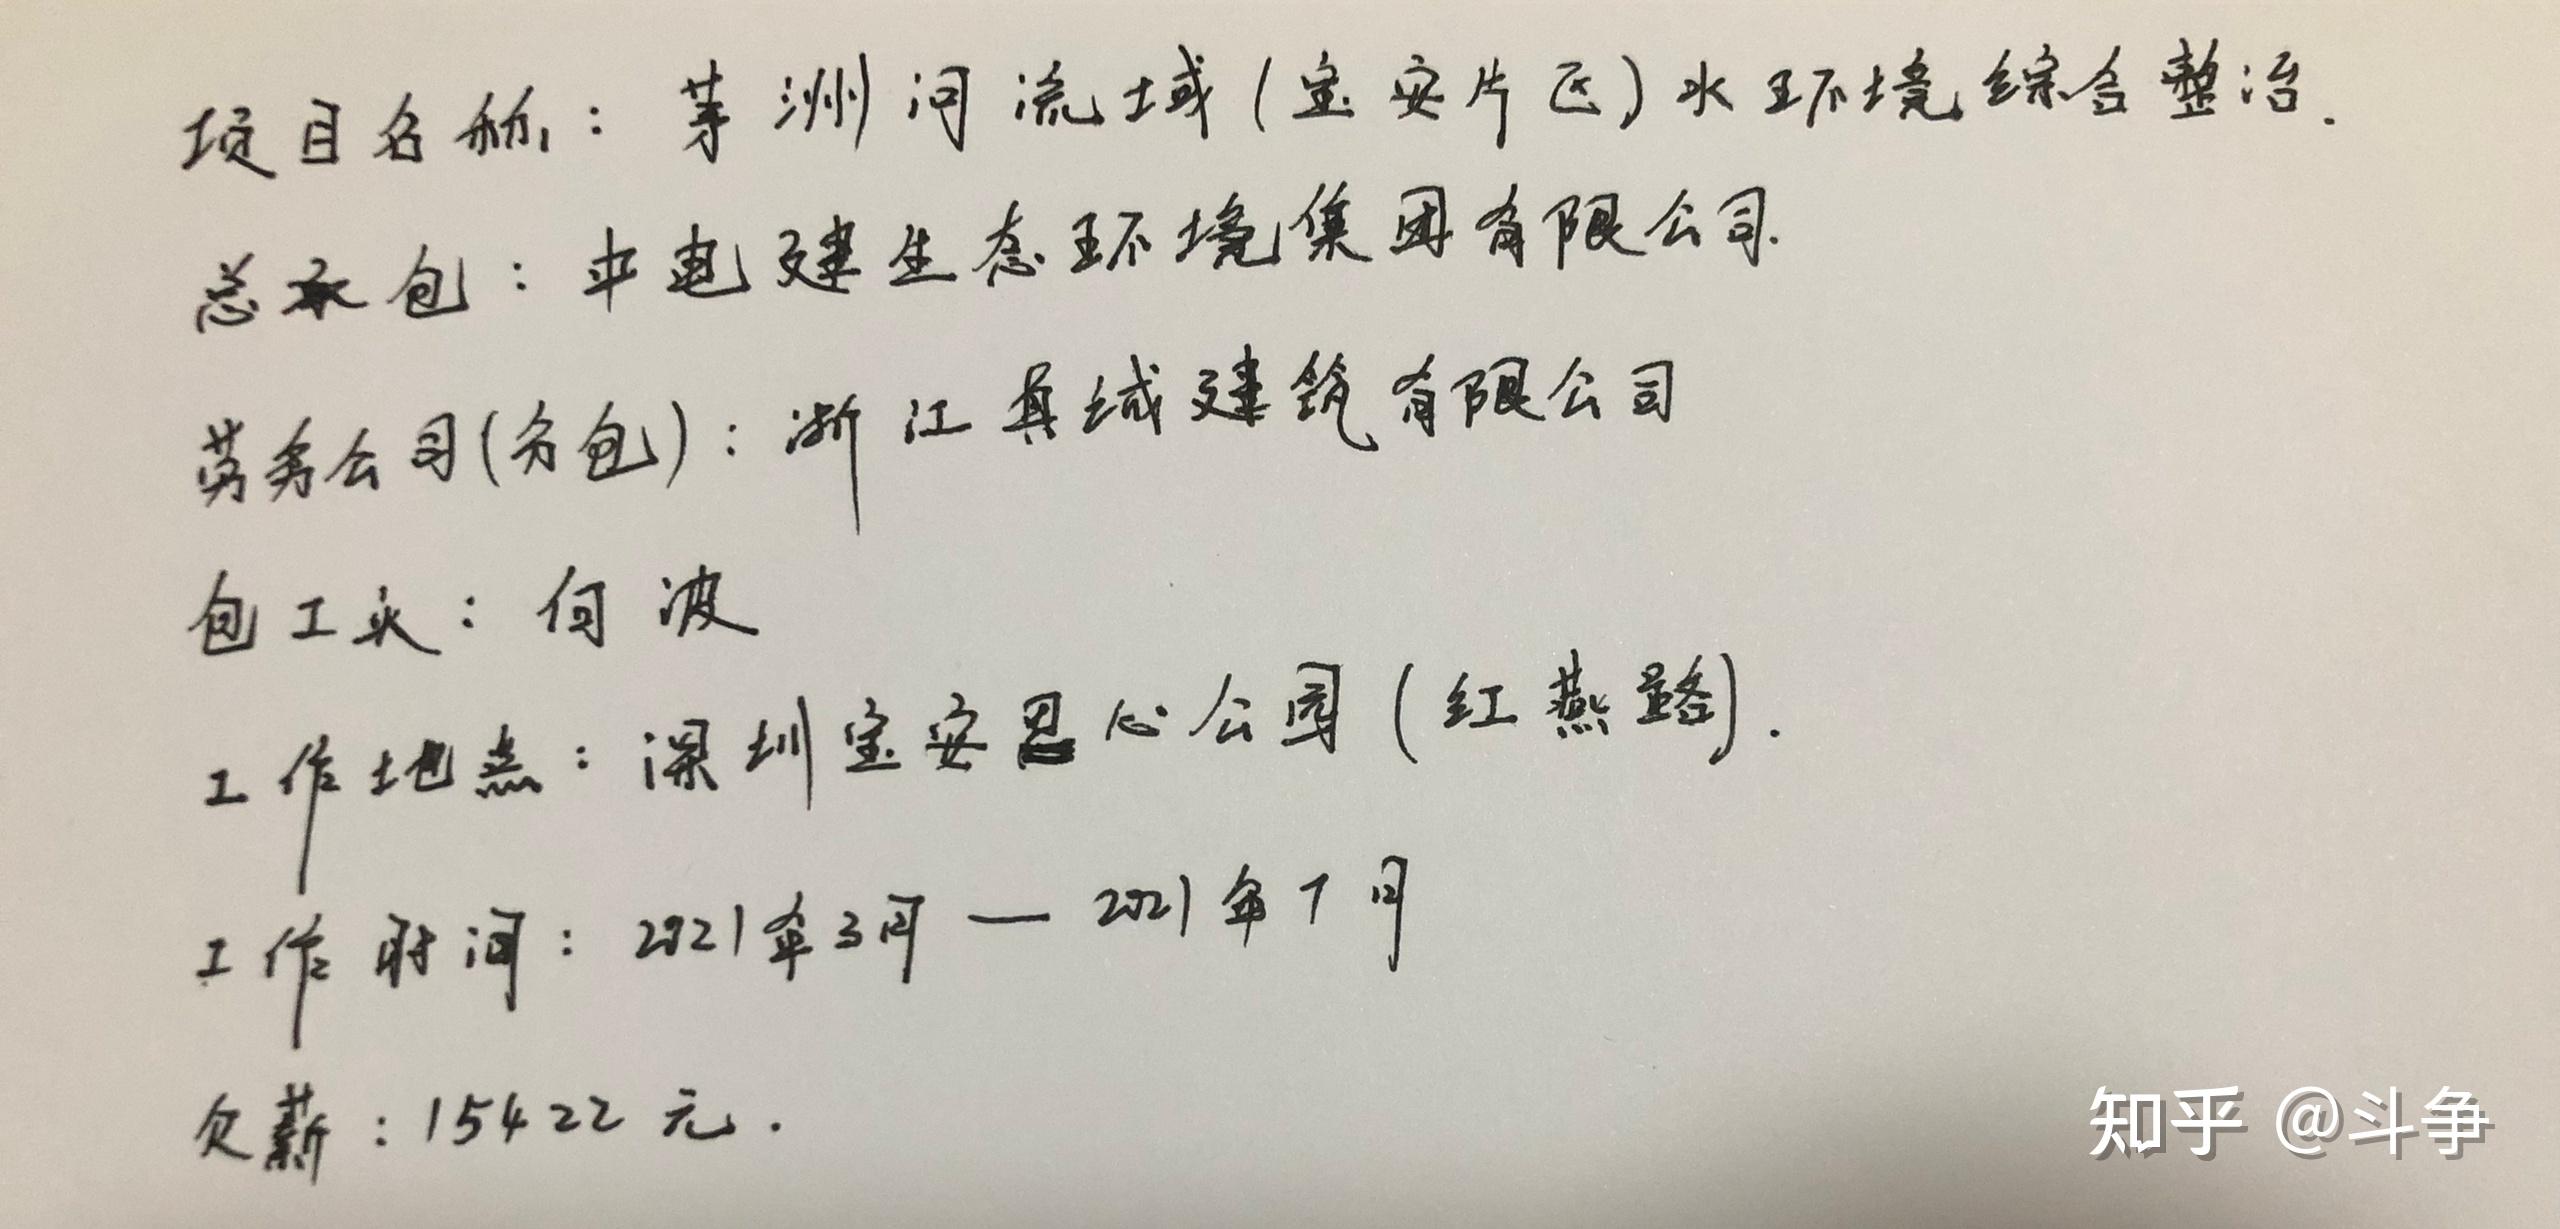 项目名称：茅洲河流域（宝安片区）水环境综合整治.
总承包：中电建生态环境集团有限公司.
劳务公司（分包）：浙江真域建筑有限公司
包工头：何波
工作地点：深圳宝安忍心公园（红燕路）.
工作时间：2021年3月—2021年7月
欠薪：15422元.
知乎 @斗争